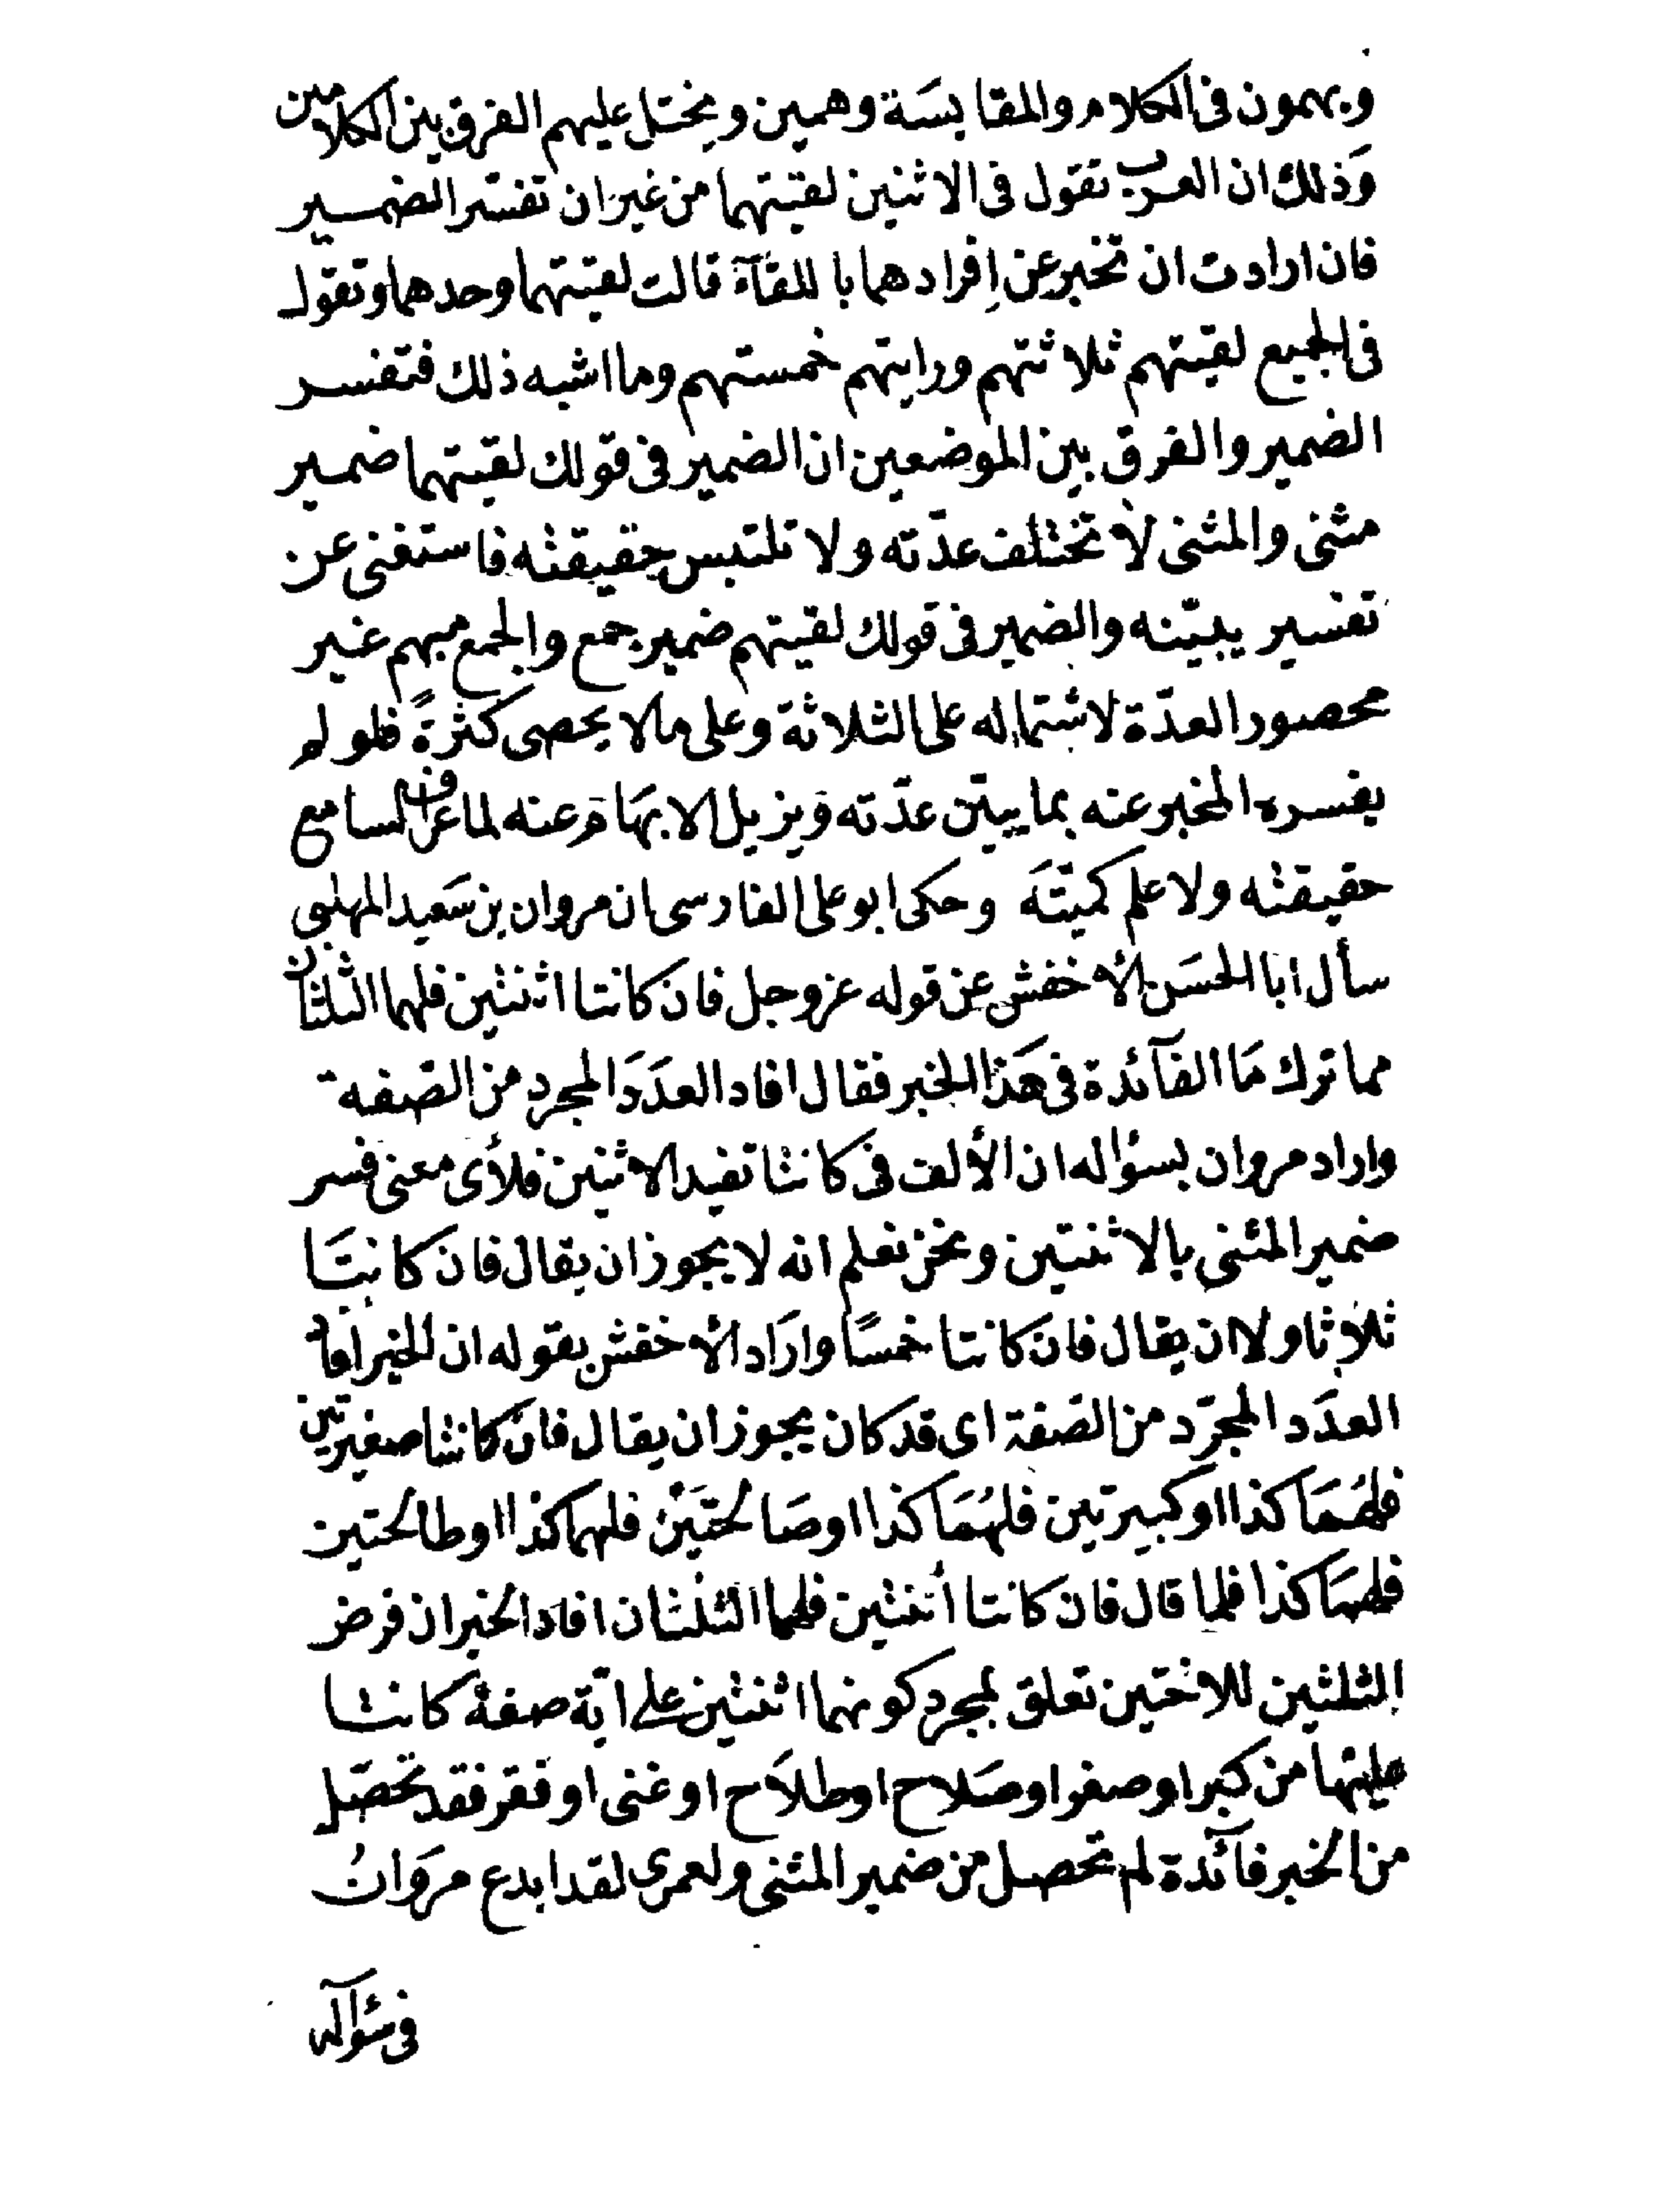 ويهمون فى الكلام والمقايسَة وهمين ويختل عليهم الفرق بين الكلامين
وَذلك ان العرب تقول فى الاثنين لقيتهما من غير ان تفسّر الضمير
فان ارادت ان تخبر عن إفرادهما باللقآء قالت لقيتهما وحدهما وتقول
فى الجميع لقيتهم ثلاثتهم ورايتهم خمستهم وما اشبه ذلك فتفسر
الضمير والفرق بين الموضعين ان الضمير فى قولك لقيتهما ضمير
مثنى والمثنى لا تختلف عدّته ولا تلتبس حقيقته فاستغنى عن
تفسير يبيّنه والضمير فى قولك لقيتهم ضمير جمع والجمع مبهم غير
محصور العدّة لاشتماله على الثلاثة وعلى مالا يحصى كثرةً فلو لم
يفسره المخبر عنه بما يبيّن عدّته ويزيل الابهَام عنه لما عرف السامع
حقيقته ولا علم كميّتَه وحكى ابو على الفارسى ان مروان بن سَعيد المهلبى
سأل ابا الحسَن الأخفش عن قوله عز وجل فان كانتا اثنتين فلهما الثلثان
مما ترك مَا الفآئدة فى هَذا الخبر فقال افاد العدَدَ المجرد من الصّفة
واراد مروان بسؤاله ان الألف فى كانتا تفيد الاثنين فلأى معنى فسر
ضمير المثنى بالاثنتين ونحن نعلم انه لا يجوز ان يقال فان كانتَا
ثلاثا ولا ان يقال فان كانتا خمسًا وارَاد الأخفش بقوله ان الخبر افاد
العدَد المجرّد من الصّفة اى قد كان يجوز ان يقال فان كانتا صغيرتين
فلهُمَا كذا او كبيرتين فلهُمَا كذا او صَالحتَيْن فلهما كذا او طالحتين
فلهمَا كذا فلما قال فان كانتا أثنتين فلهما الثلثان افاد الخبر ان فرض
الثلثين للاختين تعلق بمجرد كونهما اثنتين على ايّة صفة كانتا
عليها من كبر او صغر او صَلاح او طلَاح او غنى او فقر فقد تحصّل
من الخبر فآئدة لم تحصل من ضمير المثنى ولعمرى لقد ابدع مروَانُ
فى سؤآله